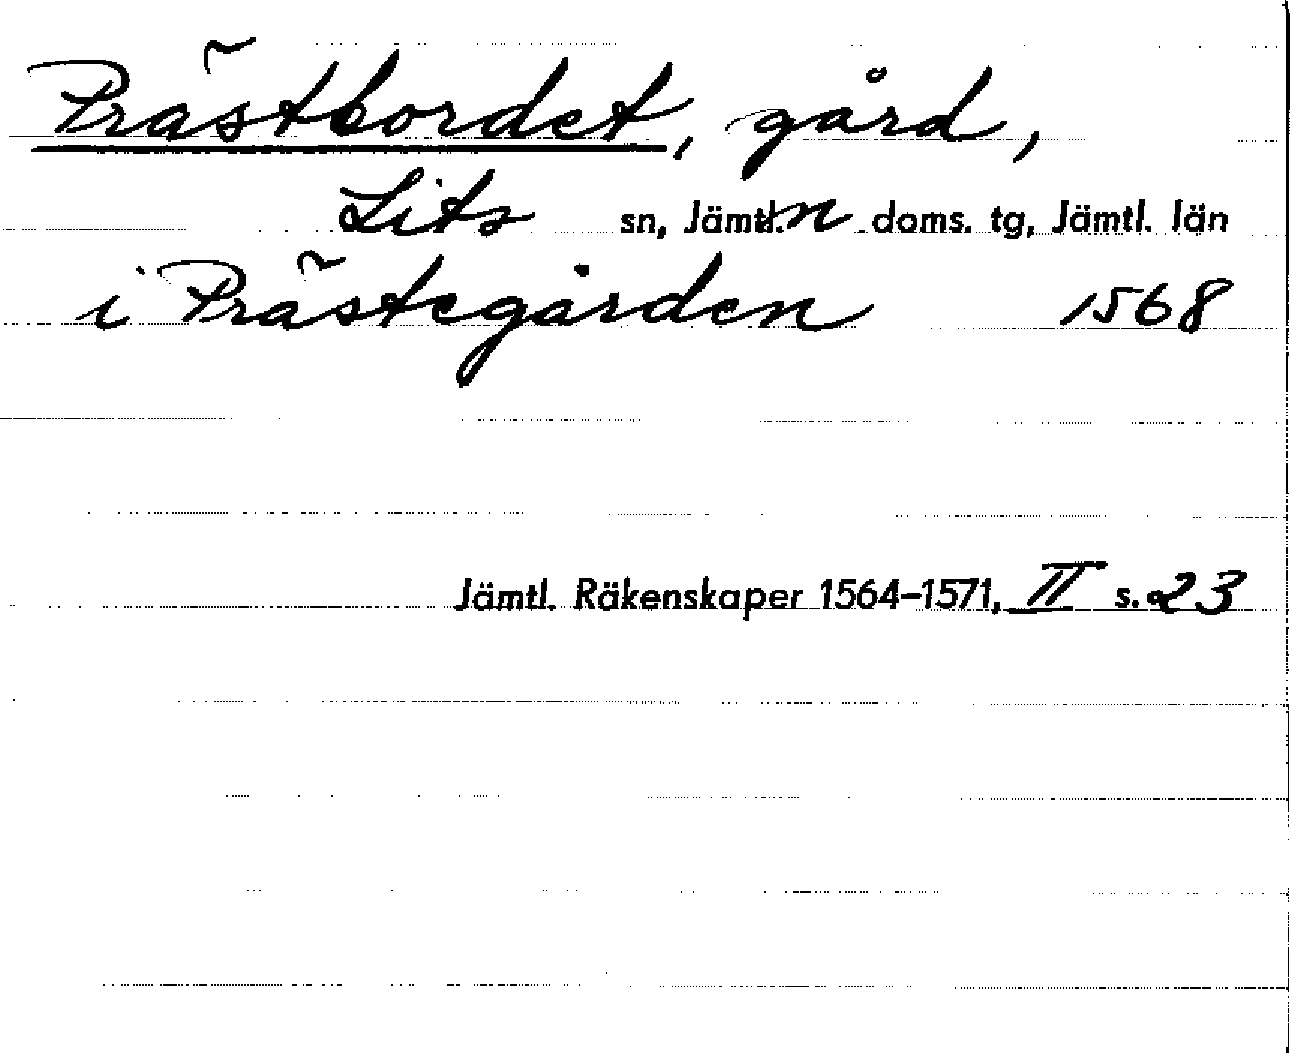 Prästbordet, gård,
Lits sn, Jämtl. n doms. tg, Jämtl. län
i Prästegården 1568
Jämtl. Räkenskaper 1564–1571, II s. 23